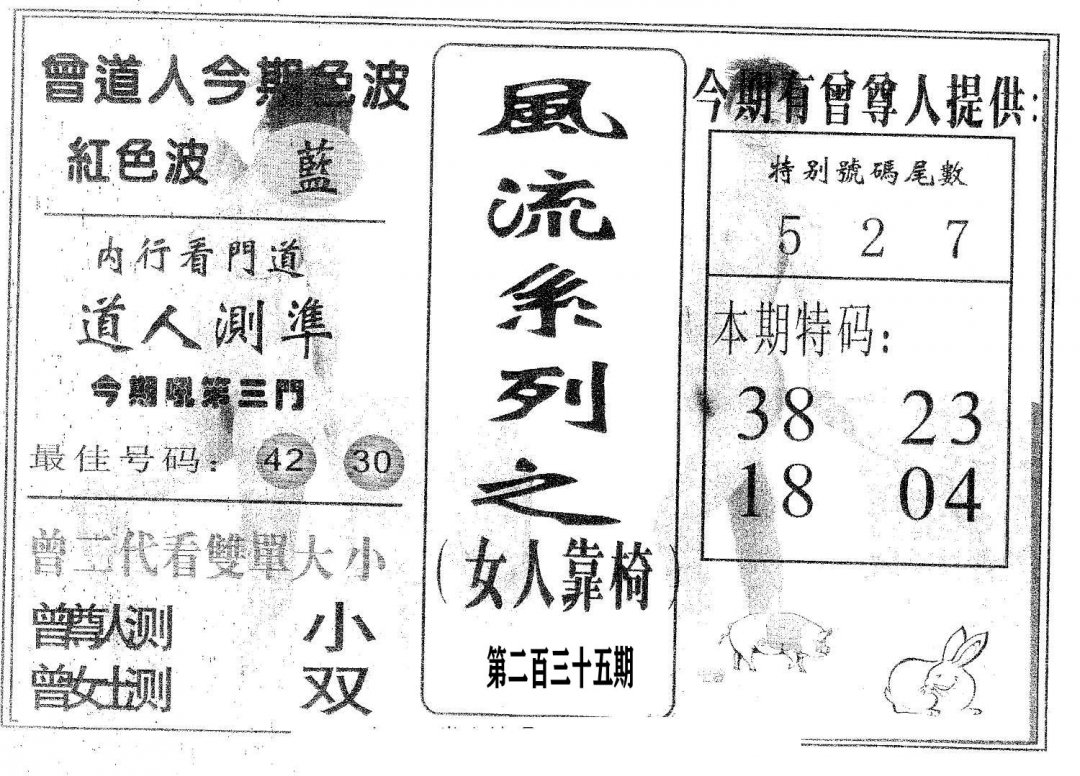 曾道人今期色波
紅色波 藍
内行看門道
道人測準
今期吼第三門
最佳号码： 42 30
曾二代看雙單大小
曾尊人测 小
曾女士测 双
風流系列之
（女人靠椅）
第二百三十五期
今期有曾尊人提供：
特别號碼尾數
5 2 7
本期特码：
38 23
18 04